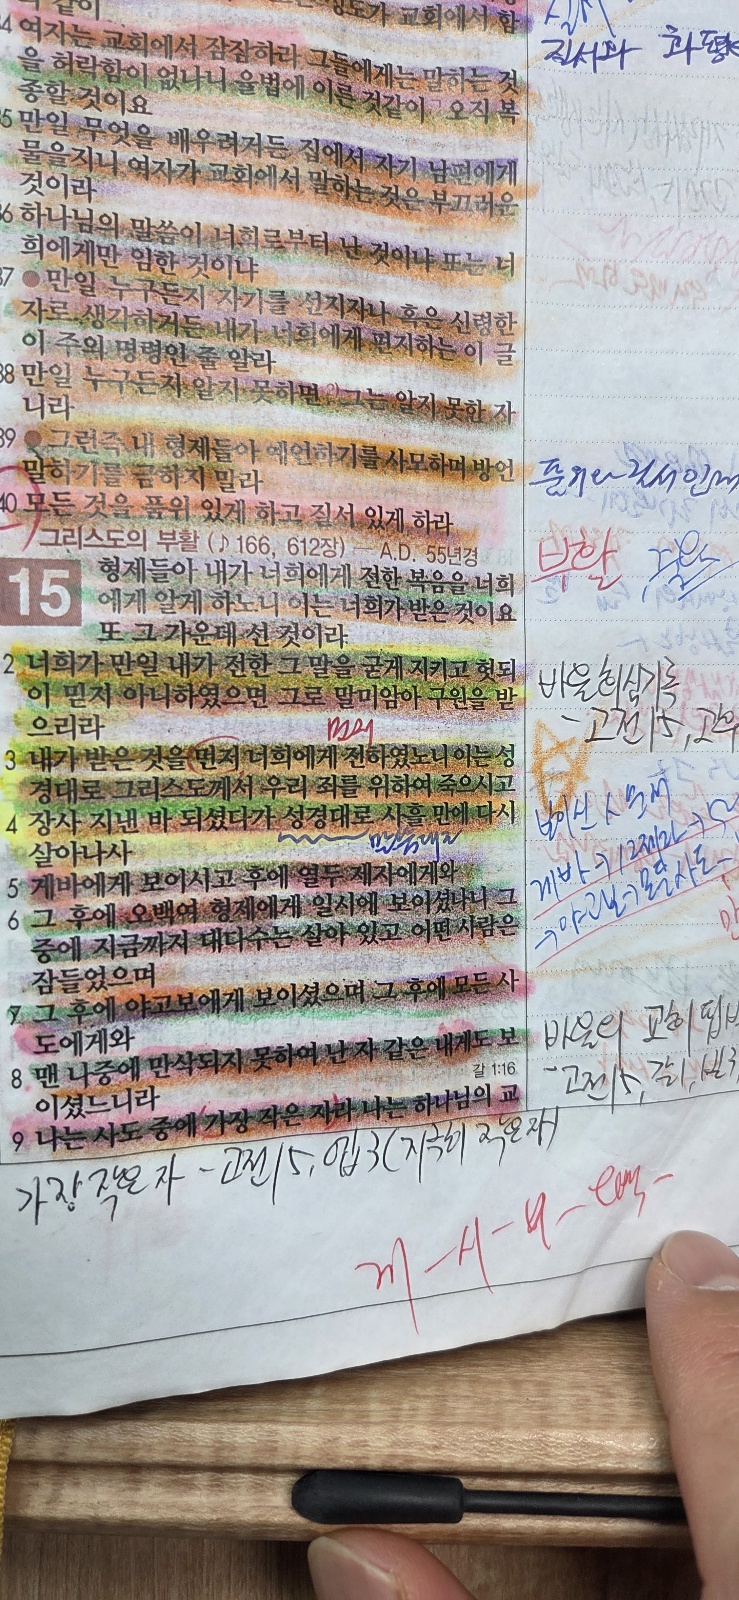 34 여자는 교회에서 잠잠하라 그들에게는 말하는 것
을 허락함이 없나니 율법에 이른 것같이 오직 복
종할 것이요
35 만일 무엇을 배우려거든 집에서 자기 남편에게
물을지니 여자가 교회에서 말하는 것은 부끄러운
것이라
36 하나님의 말씀이 너희로부터 난 것이냐 또는 너
희에게만 임한 것이냐
37 ●만일 누구든지 자기를 선지자나 혹은 신령한
자로 생각하거든 내가 너희에게 편지하는 이 글
이 주의 명령인 줄 알라
38 만일 누구든지 알지 못하면 그는 알지 못한 자
니라
39 ●그런즉 내 형제들아 예언하기를 사모하며 방언
말하기를 금하지 말라
40 모든 것을 품위 있게 하고 질서 있게 하라
그리스도의 부활 (♪166, 612장) ─ A.D. 55년경
15 형제들아 내가 너희에게 전한 복음을 너희
에게 알게 하노니 이는 너희가 받은 것이요
또 그 가운데 선 것이라
2 너희가 만일 내가 전한 그 말을 굳게 지키고 헛되
이 믿지 아니하였으면 그로 말미암아 구원을 받
으리라
먼저
3 내가 받은 것을 먼저 너희에게 전하였노니 이는 성
경대로 그리스도께서 우리 죄를 위하여 죽으시고
4 장사 지낸 바 되셨다가 성경대로 사흘 만에 다시
살아나사
말씀대로
5 게바에게 보이시고 후에 열두 제자에게와
6 그 후에 오백여 형제에게 일시에 보이셨나니 그
중에 지금까지 대다수는 살아 있고 어떤 사람은
잠들었으며
7 그 후에 야고보에게 보이셨으며 그 후에 모든 사
도에게와
8 맨 나중에 만삭되지 못하여 난 자 같은 내게도 보
갈 1:16
이셨느니라
9 나는 사도 중에 가장 작은 자라 나는 하나님의 교
가장 작은 자 - 고전15, 엡3(지극히 작은자)
질서와 화평
부활
바울회심기록
- 고전15,
보이신
게바→12제자→
→야고보→모든사도→
바울의 교회 핍박
- 고전15, 갈1, 빌3